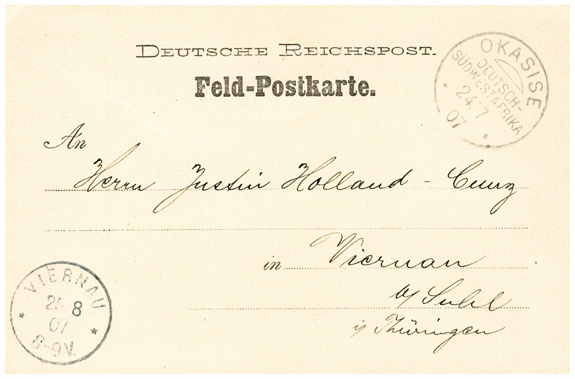 DEUTSCHE REICHSPOST.
Feld-Postkarte.
OKASISE
DEUTSCH-
SÜDWESTAFRIKA
24.7
07
An
Herrn Justin Holland-Cunz
in Viernau
b/ Suhl
i/ Thüringen
VIERNAU
25 8
07
8-9V.